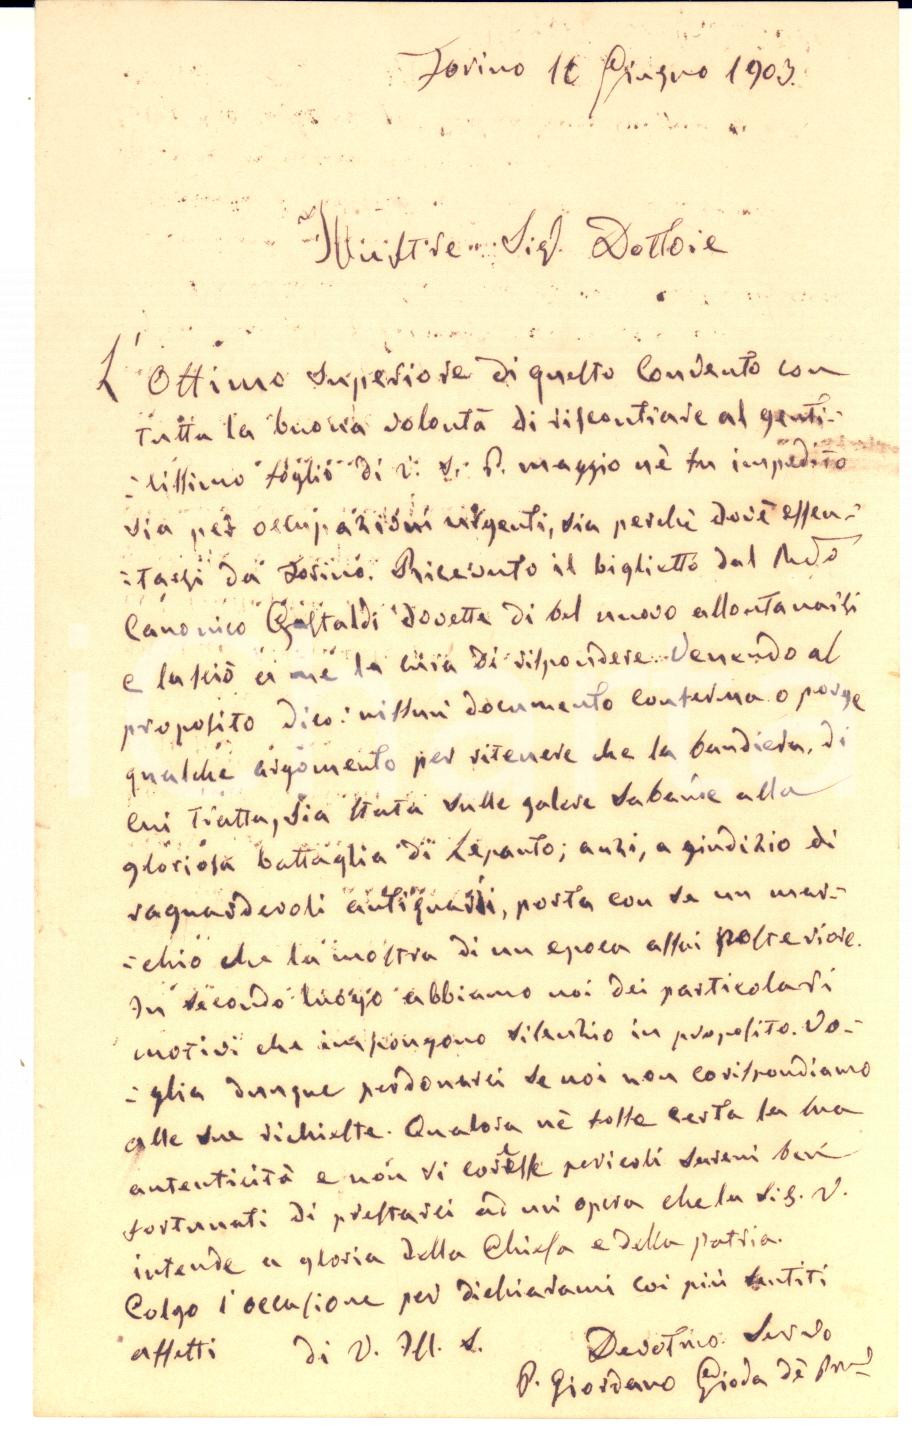 Torino 16 Giugno 1903.
Illustre Sig. Dottore
L'Ottimo Superiore di questo Convento con
tutta la buona volontà di riscontrare al genti-
-lissimo foglio di V. S. P. maggio nè fu impedito
sia per occupazioni urgenti, sia perchè dovè assen-
-tarsi da Torino. Ricevuto il biglietto dal Rndo
Canonico Gastaldi dovette di bel nuovo allontanarsi
e lasciò a me la cura di rispondere. Venendo al
proposito dico: nissun documento conferma o porge
qualche argomento per ritenere che la bandiera, di
cui tratta, sia stata sulle galere Sabaude alla
gloriosa battaglia di Lepanto; anzi, a giudizio di
raguardevoli antiquari, porta con se un mar-
-chio che la mostra di un epoca assai posteriore.
In secondo luogo abbiamo noi dei particolari
motivi che impongono silenzio in proposito. Vo-
-glia dunque perdonarci se noi non corispondiamo
alle sue richieste. Qualora nè fosse certa la sua
autenticità e non vi corresse pericoli sareni ben
fortunati di prestarci ad un opera che la Sig. V.
intende a gloria della Chiesa e della patria.
Colgo l'occasione per dichiararmi coi più sentiti
affetti di V. Ill. S. Devotmo Servo
P. Giordano Gioda dè Pred